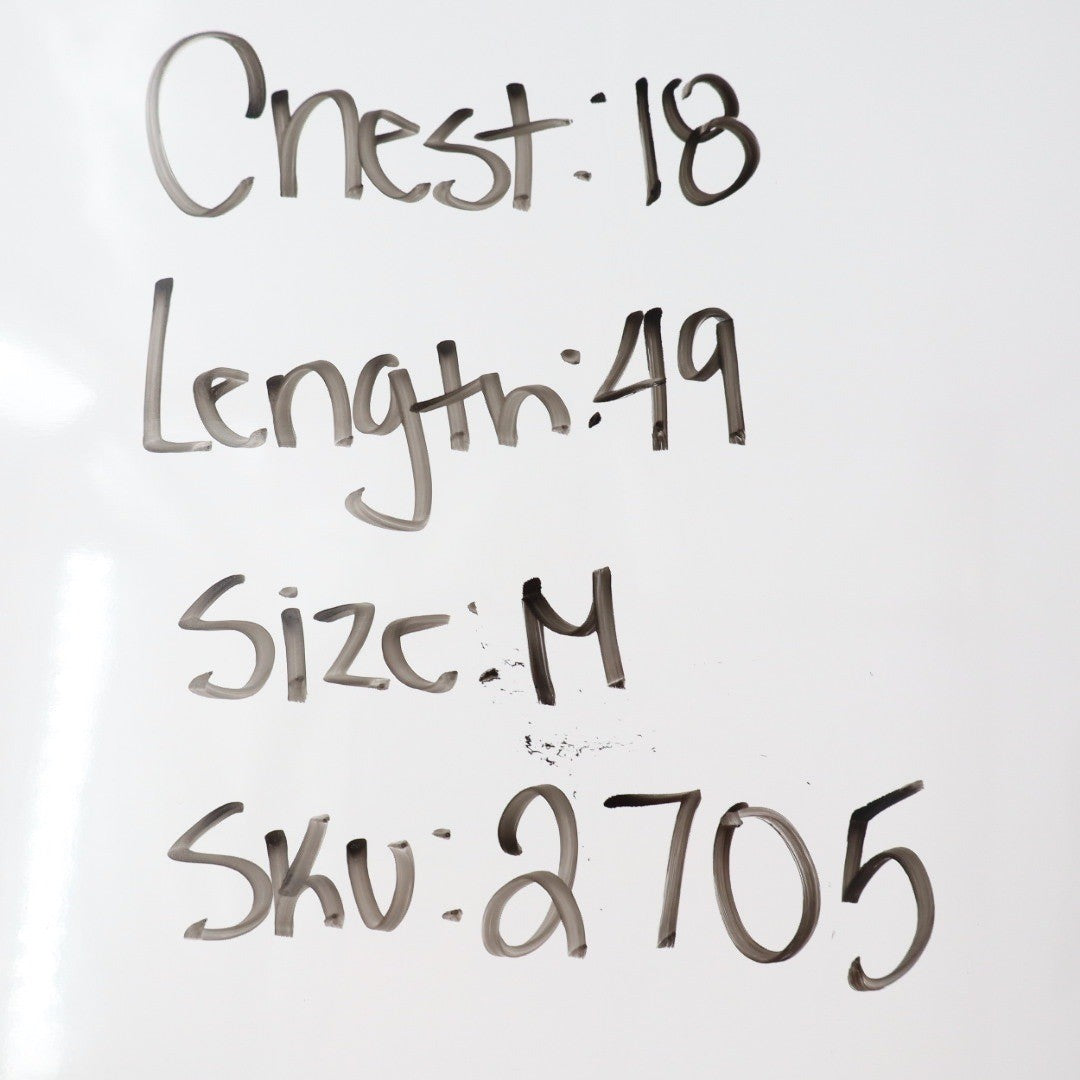 Chest: 18
Length: 49
Size: M
SKU: 2705